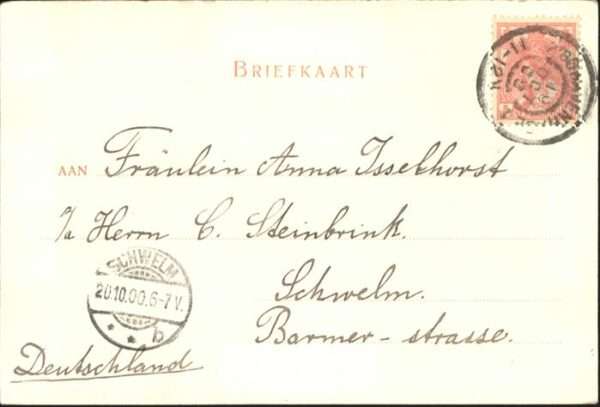 BRIEFKAART
AAN Fräulein Anna Isselhorst
p/a Herrn C. Steinbrink.
Schwelm.
Barmer-strasse.
Deutschland
SCHWELM
20.10.00.6-7 V.
* * b
11-12V